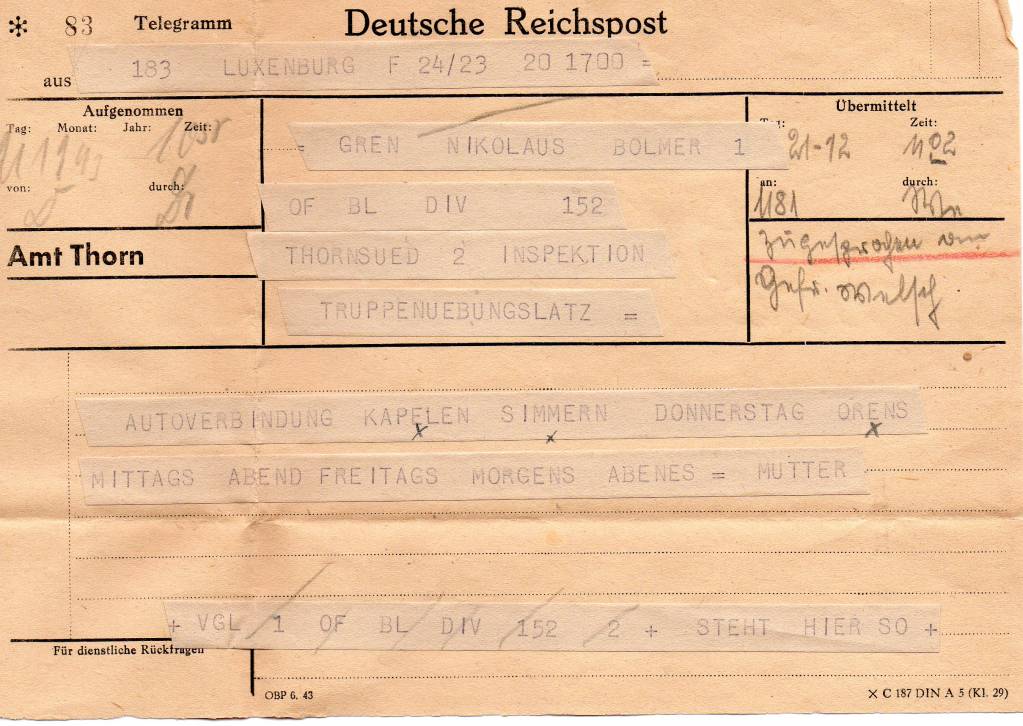 * 83 Telegramm Deutsche Reichspost
aus 183 LUXENBURG F 24/23 20 1700 =
Aufgenommen
Tag: Monat: Jahr: Zeit:
von: durch:
Übermittelt
Zeit:
21-12
an: durch:
1181
= GREN NIKOLAUS BOLMER 1
OF BL DIV 152
THORNSUED 2 INSPEKTION
TRUPPENUEBUNGSLATZ =
Amt Thorn
zugesprochen
Gefr. Welsch
AUTOVERBINDUNG KAPELEN SIMMERN DONNERSTAG ORENS
MITTAGS ABEND FREITAGS MORGENS ABENES = MUTTER
+ VGL 1 OF BL DIV 152 2 + STEHT HIER SO +
Für dienstliche Rückfragen
OBP 6. 43
× C 187 DIN A 5 (Kl. 29)